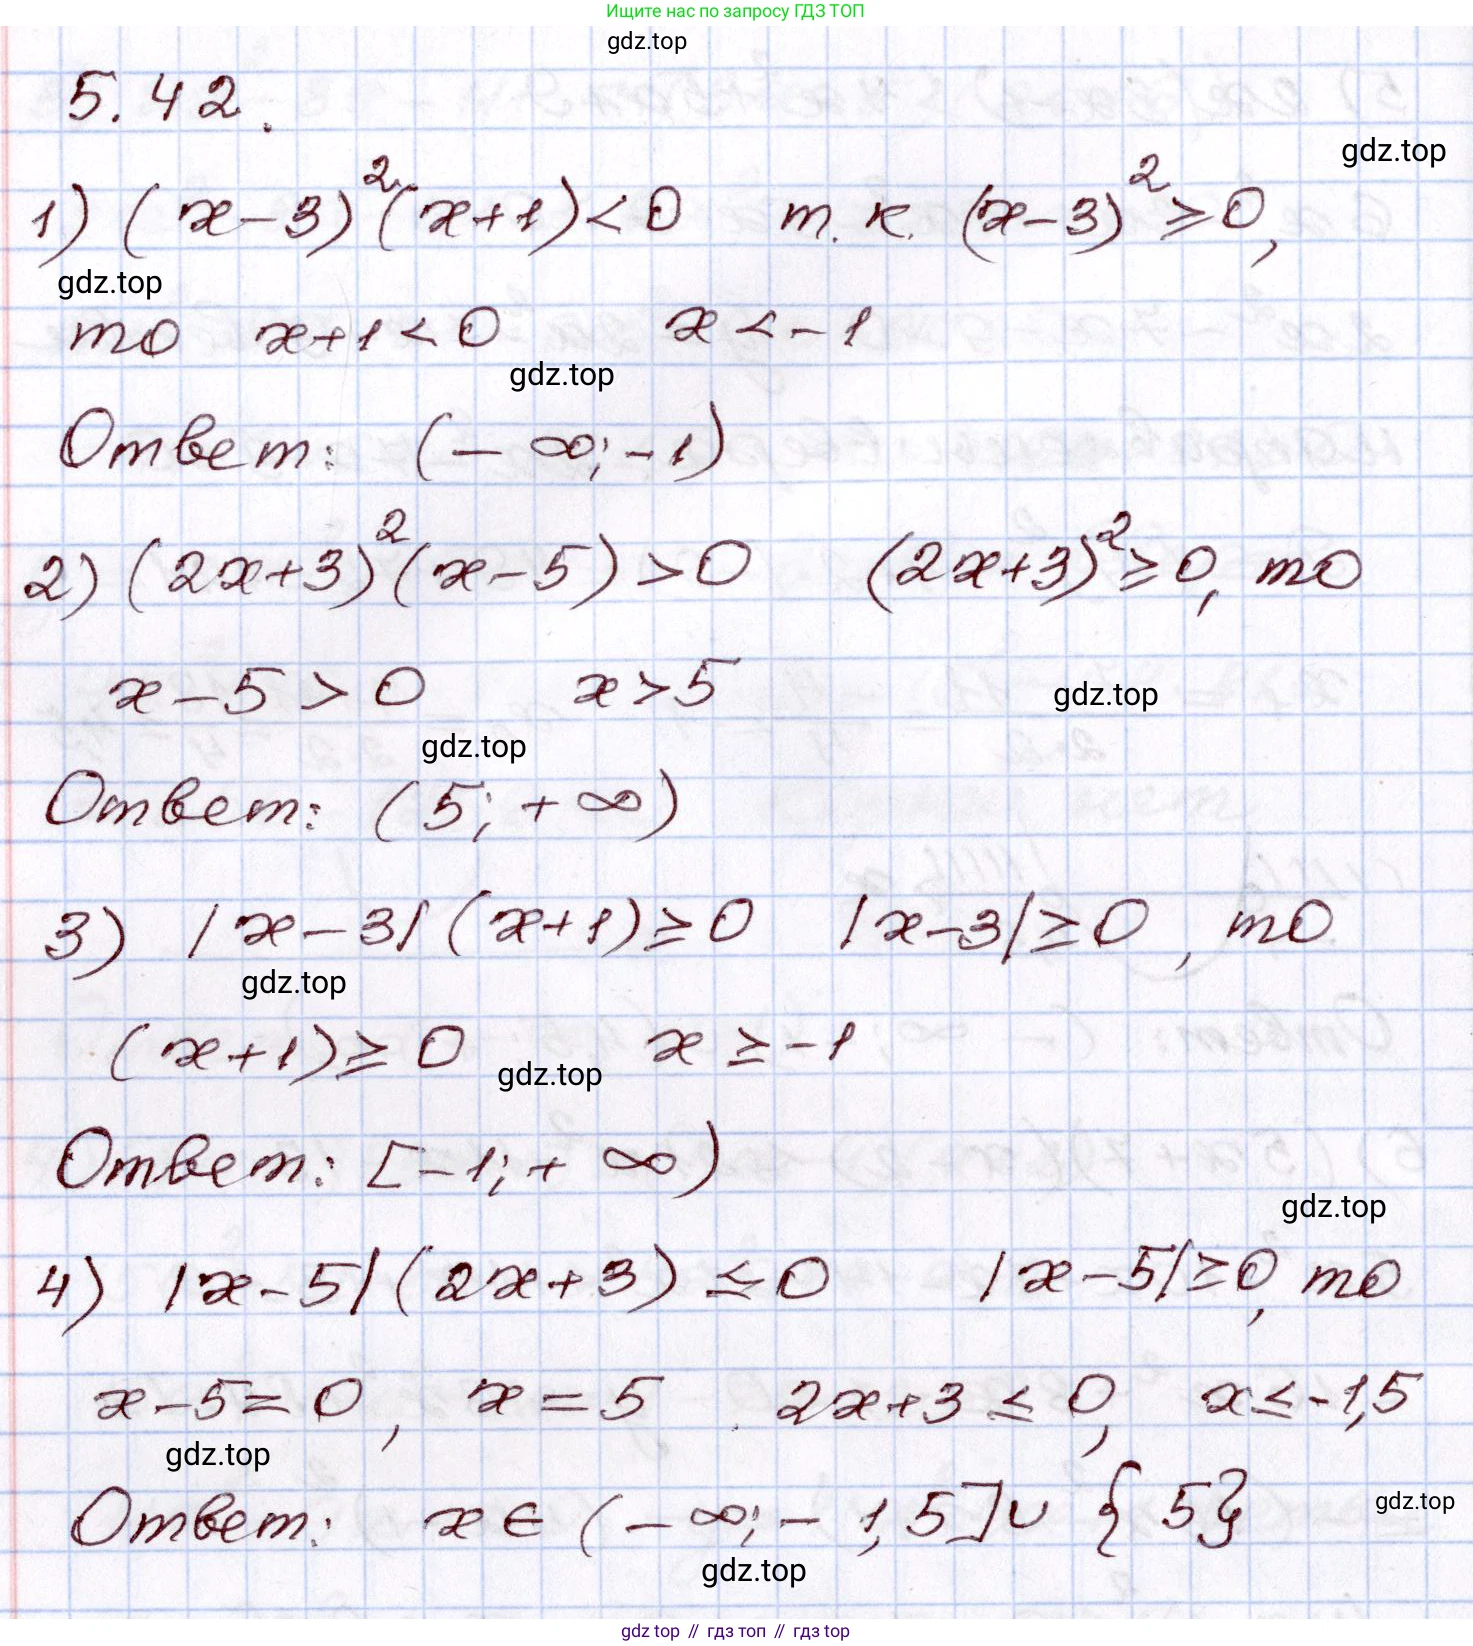 Ищите нас по запросу ГДЗ ТОП
gdz.top
5.42.
gdz.top
1) (x-3)²(x+1)<0 т.к. (x-3)²≥0,
gdz.top
то x+1<0 x<-1
gdz.top
Ответ: (-∞;-1)
2) (2x+3)²(x-5)>0 (2x+3)²≥0, то
x-5>0 x>5
gdz.top
gdz.top
Ответ: (5;+∞)
3) |x-3|(x+1)≥0 |x-3|≥0, то
gdz.top
(x+1)≥0 x≥-1
gdz.top
Ответ: [-1;+∞)
gdz.top
4) |x-5|(2x+3)≤0 |x-5|≥0, то
x-5=0, x=5 2x+3≤0, x≤-1,5
gdz.top
Ответ: x∈(-∞;-1,5]∪{5}
gdz.top
gdz.top
gdz top // гдз топ // гдз top